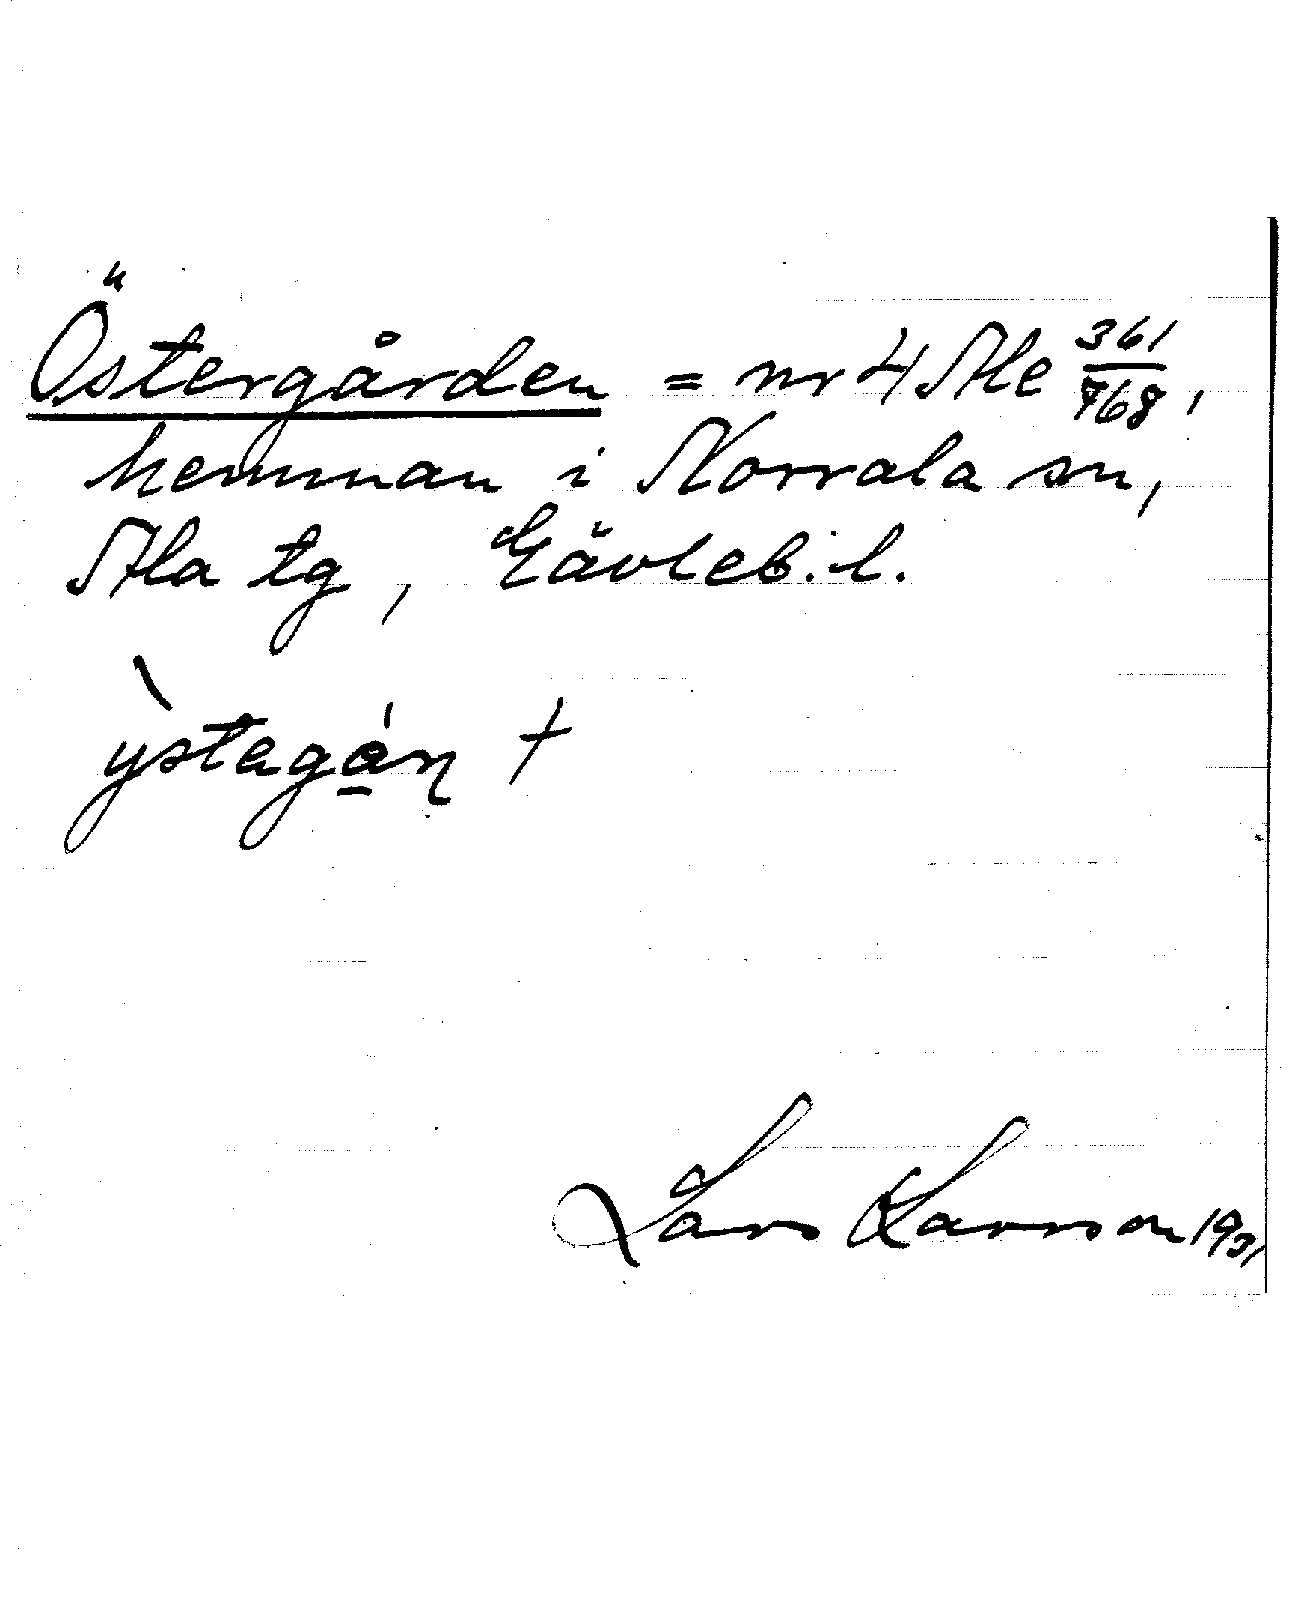 Östergården = nr 4 Ale 361/768,
hemman i Norrala sn,
Ala tg, Gävleb. l.
ỳstagáɳ †
Lars Larsson 1931